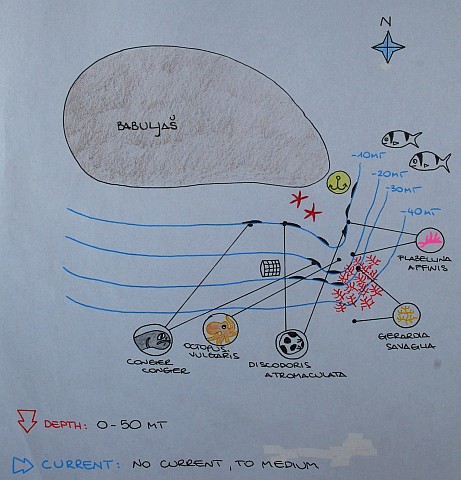 N
BABULJAŠ
-10MT
-20MT
-30MT
-40MT
FLABELLINA
AFFINIS
GERARDIA
SAVAGLIA
CONGER
CONGER
OCTOPUS
VULGARIS
DISCODORIS
ATROMACULATA
DEPTH: 0-50 MT
CURRENT: NO CURRENT, TO MEDIUM